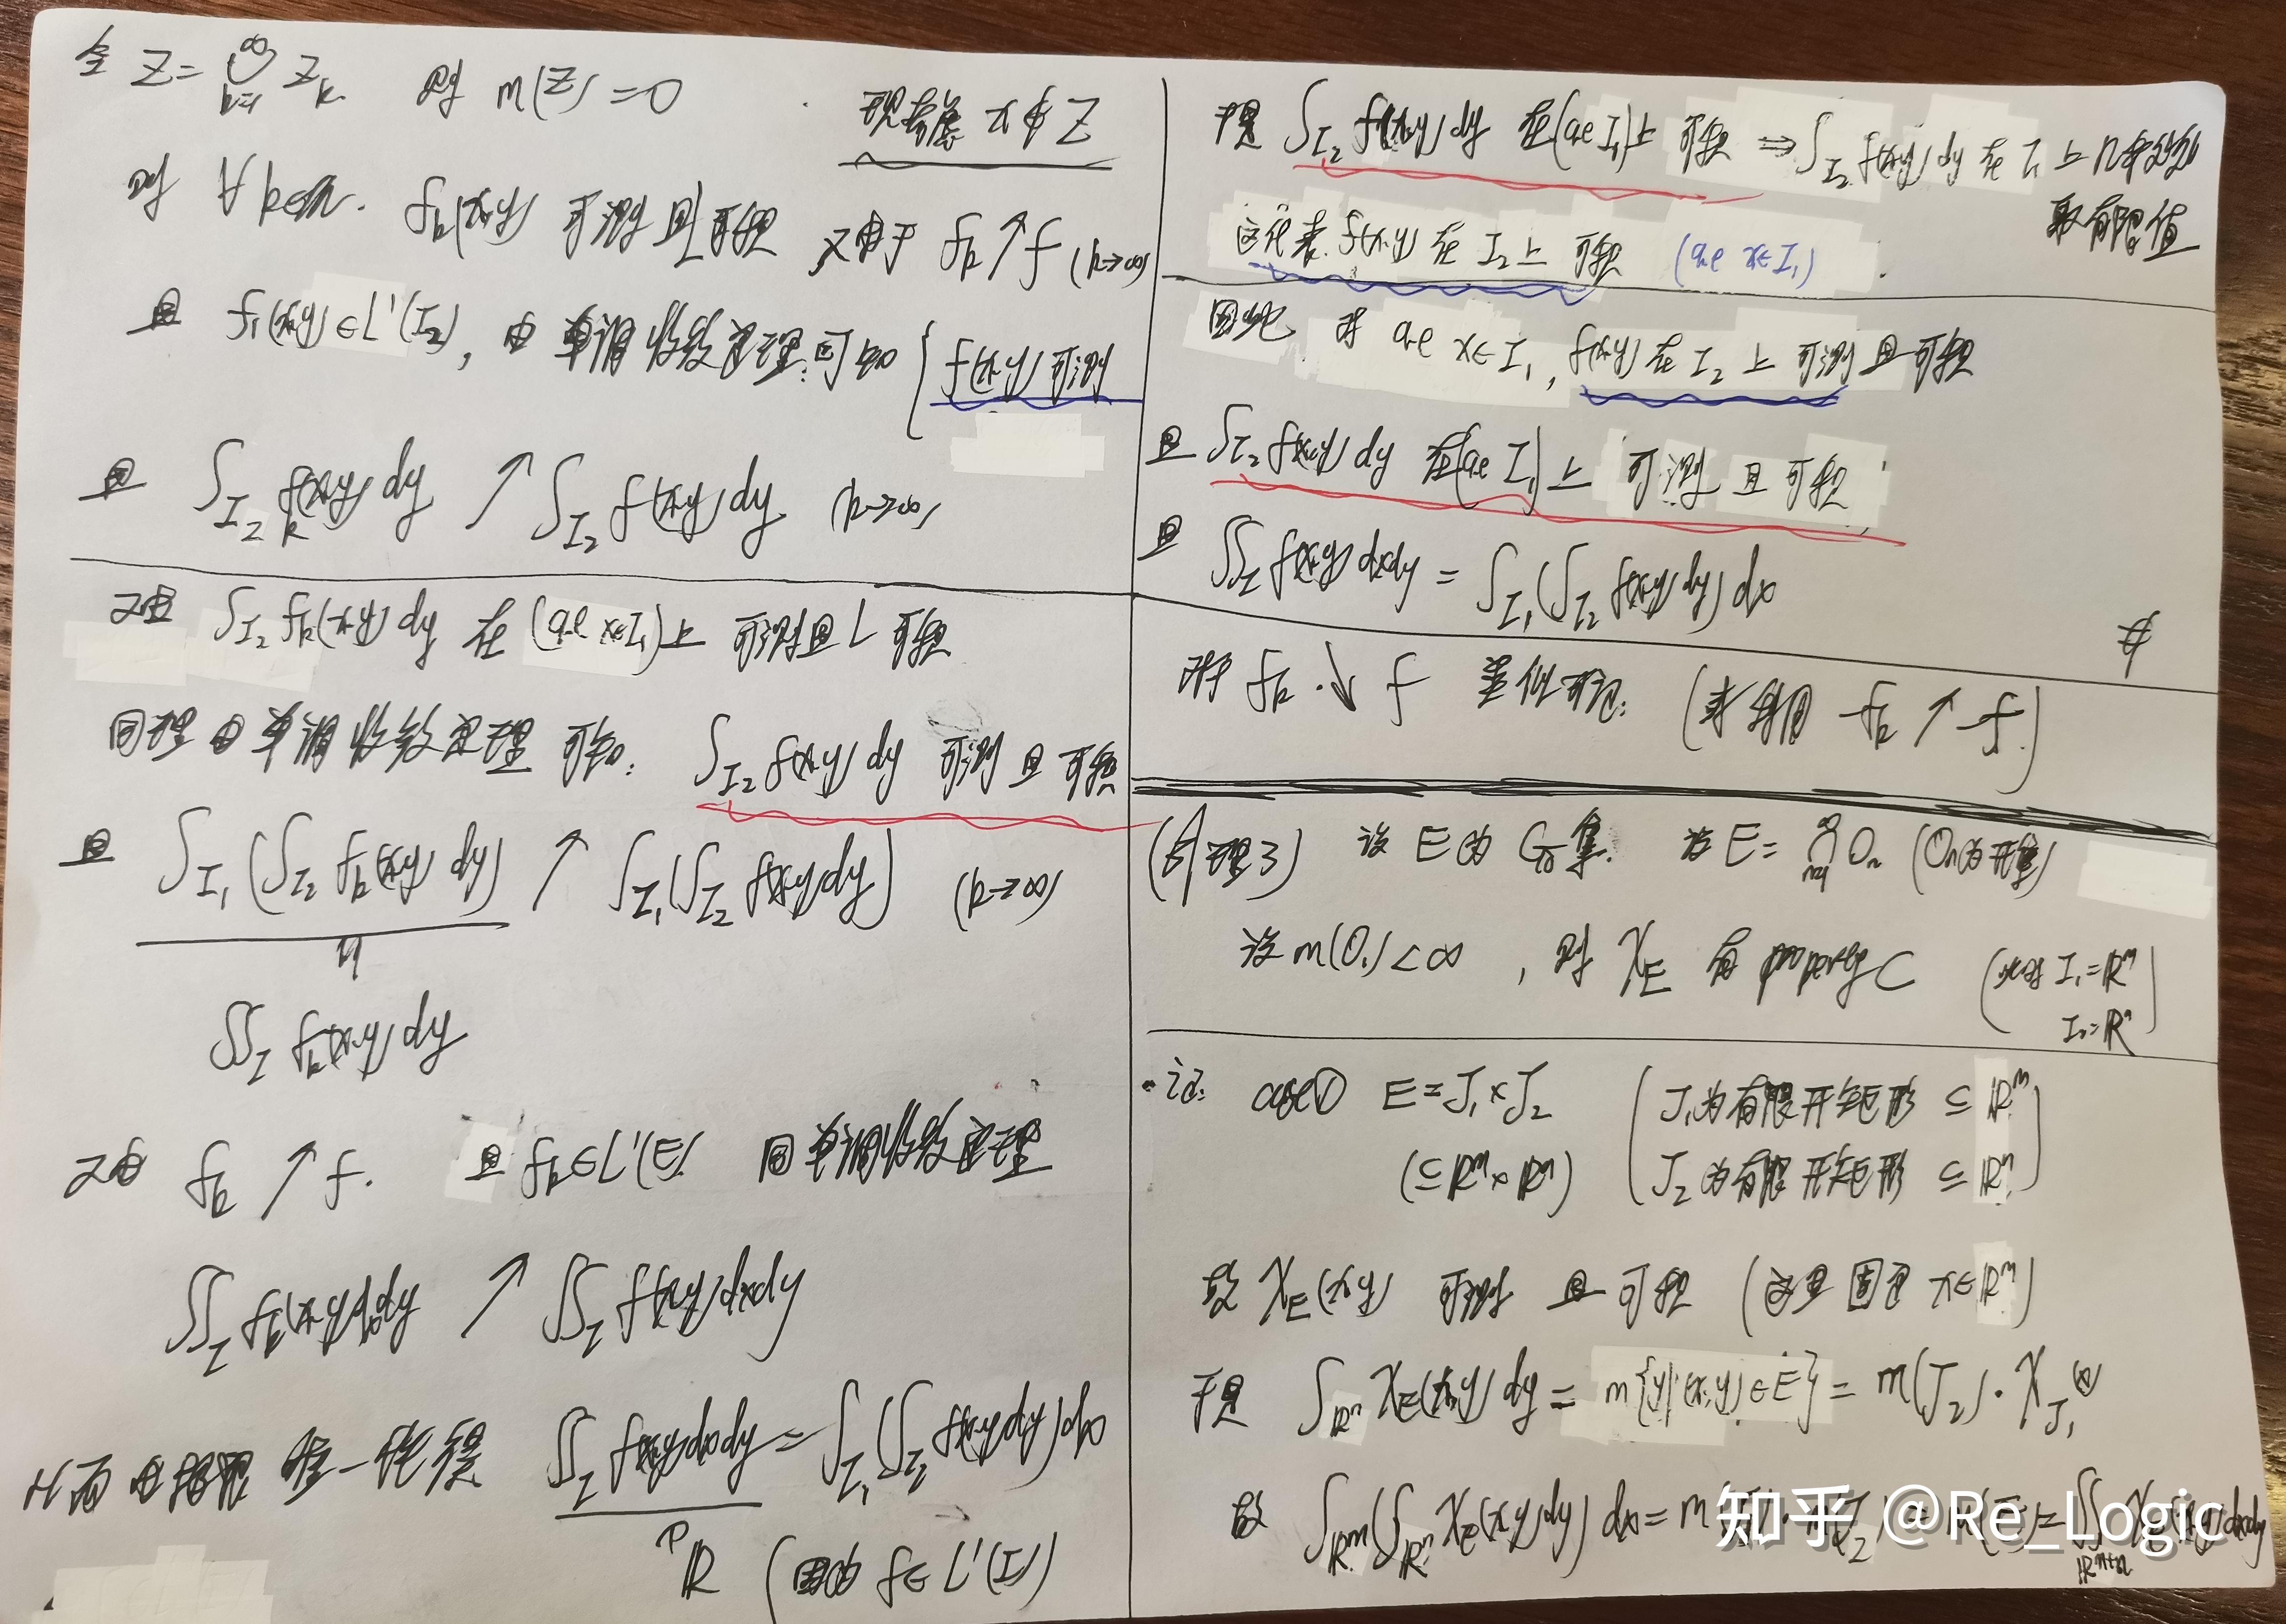 令 Z = ∪_{k=1}^{∞} Z_k. 则 m(Z) = 0
现考虑 x ∉ Z
则 ∀ k∈N. f_k(x,y) 可测且L可积 又由于 f_k ↑ f (k→∞)
且 f_1(x,y) ∈ L'(I_2), 由单调收敛定理:可知 { f(x,y) 可测
且 ∫_{I_2} f_k(x,y) dy ↑ ∫_{I_2} f(x,y) dy (k→∞)
又由 ∫_{I_2} f_k(x,y) dy 在 (a.e x∈I_1) 上 可测且 L 可积
同理由单调收敛定理 可知: ∫_{I_2} f(x,y) dy 可测且可积
且 ∫_{I_1} (∫_{I_2} f_k(x,y) dy) ↑ ∫_{I_1} (∫_{I_2} f(x,y) dy) (k→∞)
∬_I f_k(x,y) dy
又由 f_k ↑ f. 且 f_k ∈ L'(E) 由单调收敛定理
∬_I f_k(x,y) dxdy ↑ ∬_I f(x,y) dxdy
从而由极限唯一性得 ∬_I f(x,y) dxdy = ∫_{I_1} (∫_{I_2} f(x,y) dy) dx
∈ R (因为 f ∈ L'(I))
于是 ∫_{I_2} f(x,y) dy 在(a.e I_1)上 可积 ⇒ ∫_{I_2} f(x,y) dy 在 I_1 上几乎处处
取有限值
这代表 f(x,y) 在 I_2 上 可积 (a.e x∈I_1)
因此 对 a.e x∈I_1, f(x,y) 在 I_2 上 可测且可积
且 ∫_{I_2} f(x,y) dy 在(a.e I_1)上 可测 且 可积
且 ∬_I f(x,y) dxdy = ∫_{I_1} (∫_{I_2} f(x,y) dy) dx
#
对于 f_k ↓ f 类似可证: (利用 -f_k ↑ -f)
(引理3) 设 E 为 G_δ 集. 若 E = ∩_{n=1}^{∞} O_n (O_n为开集)
设 m(O_1) < ∞, 则 χ_E 有 property C (此时 I_1 = R^m
I_2 = R^n)
·证: case① E = J_1 × J_2 (J_1 为有限开矩形 ⊆ R^m
(⊆ R^m × R^n) J_2 为有限开矩形 ⊆ R^n)
故 χ_E(x,y) 可测 且 可积 (这里固定 x∈R^m)
于是 ∫_{R^n} χ_E(x,y) dy = m{y|(x,y)∈E} = m(J_2) · χ_{J_1}(x)
故 ∫_{R^m} (∫_{R^n} χ_E(x,y) dy) dx = m
知乎 @Re_Logic